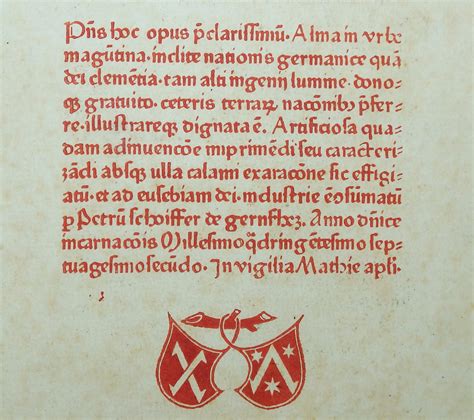 Pn̄s hoc opus p̄clarissimū. Alma in vrbe
magūtina. inclite nationis germanice quā
dei clemētia. tam alti ingenij lumine. dono-
qꝫ gratuito. ceteris terraꝝ nac̄onibꝫ p̄fer-
re. illustrareqꝫ dignata ē. Artificiosa qua-
dam adinuenc̄oe imprimēdi seu caracteri-
zādi absqꝫ ulla calami exarac̄one sic effigi-
atū. et ad eusebiam dei. industrie ē ɔsūmatū
ꝑ Petrū schoiffer de gernsheꝫ. Anno dn̄ice
incarnac̄ois Millesimo q̄dringētesimo sep-
tuagesimosecūdo. In vigilia Mathie apl̄i.